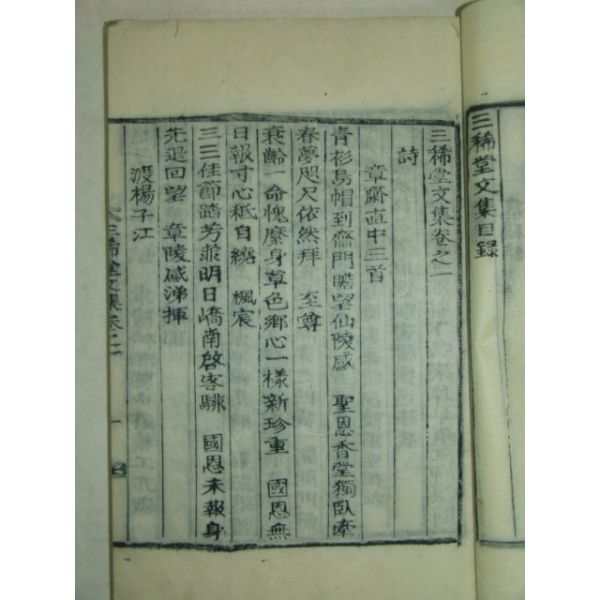 三稀堂文集目録
三稀堂文集卷之一
詩
章齋直中三首
青衫烏帽到齋門瞻望仙陵感 聖恩香堂獨臥牽
春夢咫尺依然拜 至尊
衰齡一命愧縻身草色鄕心一樣新珍重 國恩無
日報寸心秪自繞 楓宸
三三佳節踏芳菲明日嶠南啓客騑 國恩未報身
先退回望 章陵感涕揮
渡楊子江
三稀堂文集卷之一
一